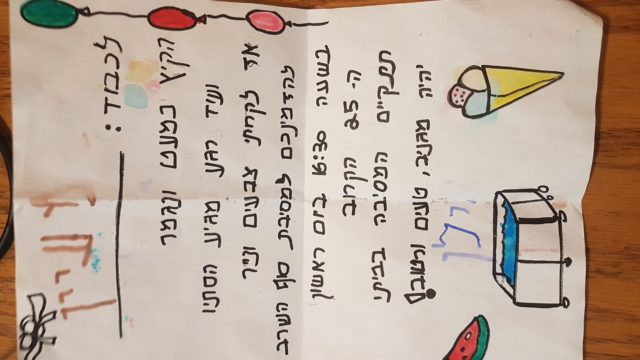 לכבוד:
הקיץ כמעט ונגמר
ועוד רגע מגיע הסתיו
אז לקחתי צבעים ונייר
להזמינכם למסיבת סוף השרב
בשעה 6:30 ביום ראשון
ה- 25 הקרוב
תתקיים המסיבה בביתי
יהיה מגניב, טעים